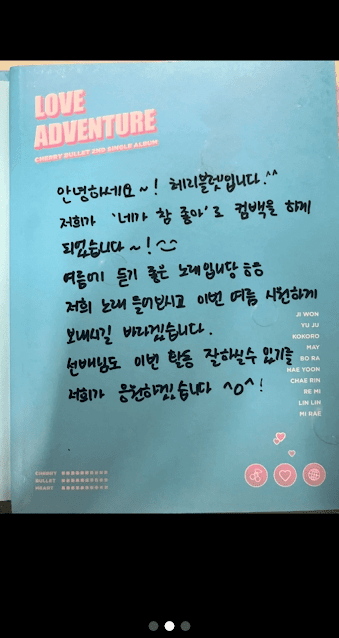 LOVE
ADVENTURE
CHERRY BULLET 2ND SINGLE ALBUM
안녕하세요~! 체리블렛입니다.^^
저희가 '네가 참 좋아'로 컴백을 하게
되었습니다~!
여름에 듣기 좋은 노래입니당 ㅎㅎ
저희 노래 들어보시고 이번 여름 시원하게
보내시길 바라겠습니다.
선배님도 이번 활동 잘하실수 있기를
저희가 응원하겠습니다 ^o^!
JI WON
YU JU
KOKORO
MAY
BO RA
HAE YOON
CHAE RIN
RE MI
LIN LIN
MI RAE
CHERRY
BULLET
HEART